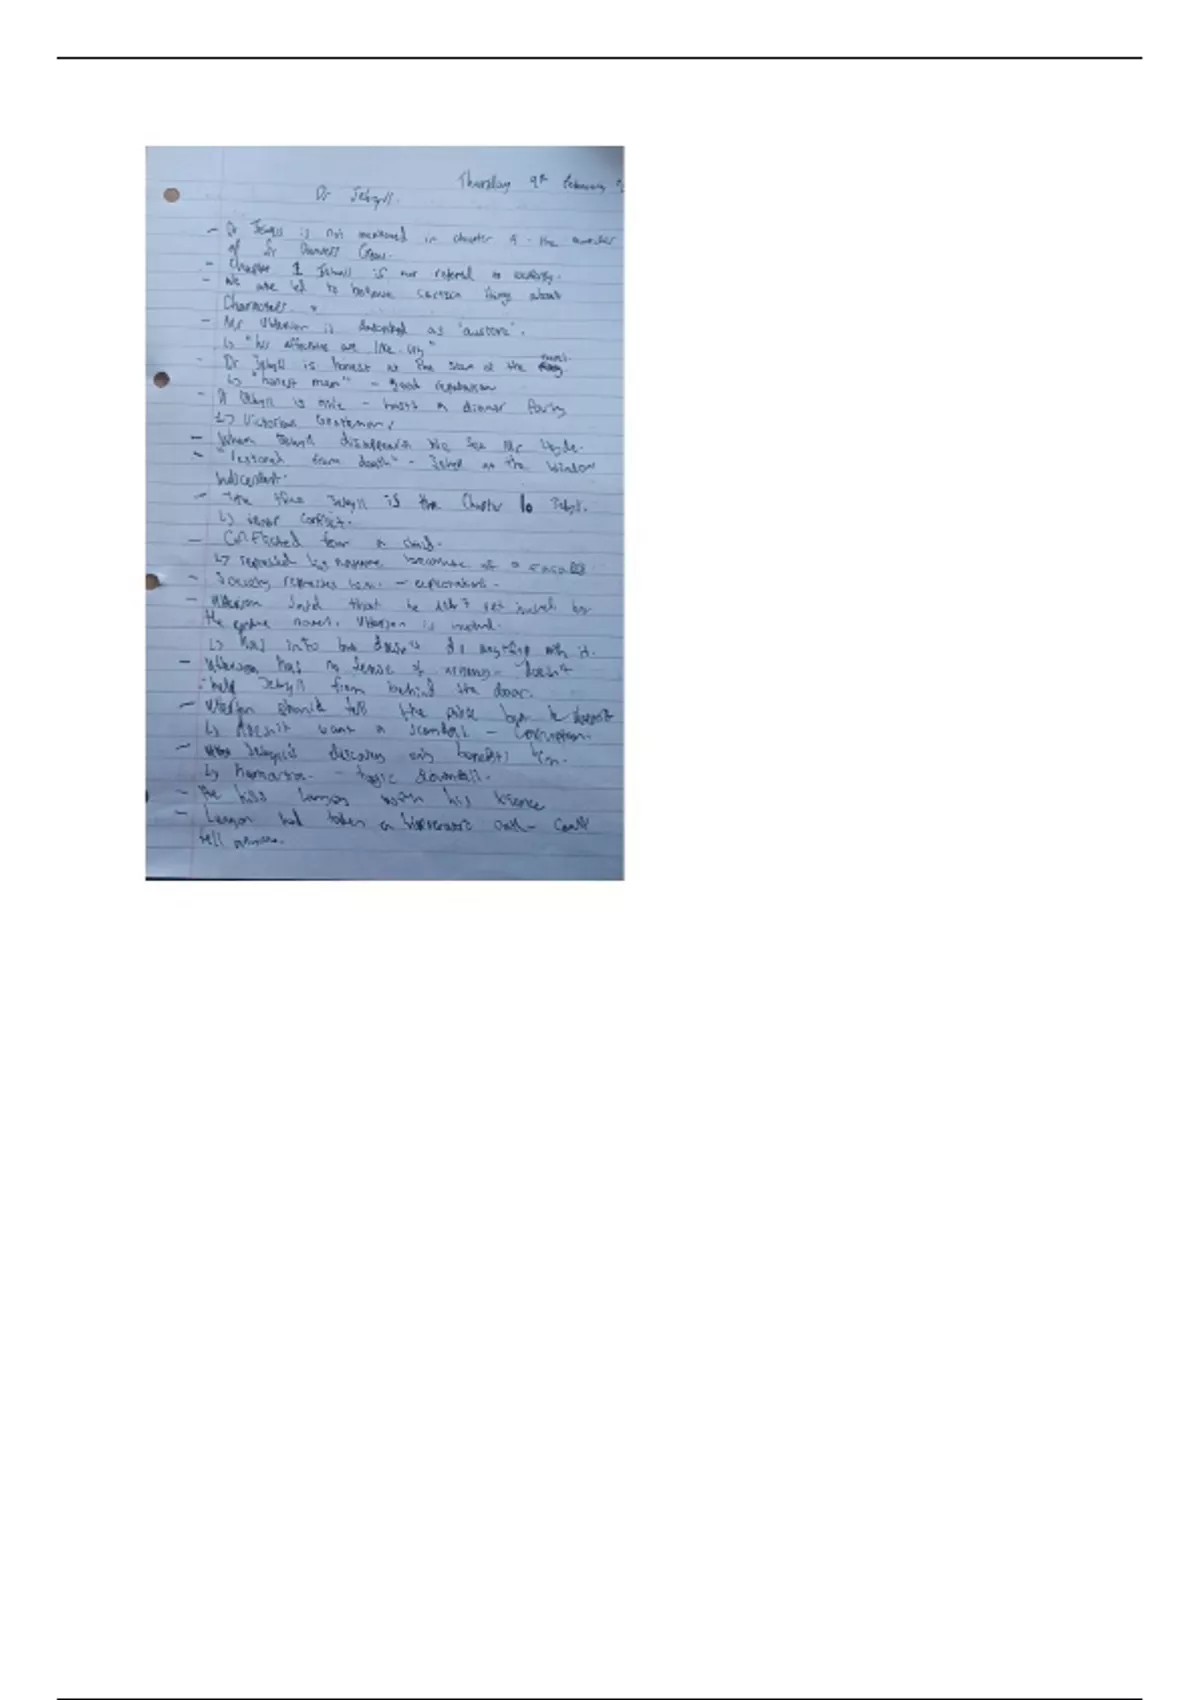 Thursday 9th February
Dr Jekyll.
- Dr Jekyll is not mentioned in chapter 4 - the murder
of Sir Danvers Carew.
- Chapter 1 Jekyll is not referred to
- We are led to believe certain things about
Characters.
- Mr Utterson is described as "austere".
↳ "his affections are like ivy"
- Dr Jekyll is honest at the start of the novel.
↳ "honest man" - good reputation
- Jekyll is - hosts a dinner Party
↳ Victorian Gentleman
- When Jekyll disappears we see Mr Hyde.
- "restored from death" - Jekyll at the window
- The true Jekyll is the Chapter 10 Jekyll.
↳ inner conflict.
- Conflicted from a child.
↳ repressed by because of a
- Society represses him - expectations.
- Utterson said that he isn't
the entire novel. Utterson is
↳ has info but doesn't do anything with it.
- Utterson has no sense of - doesn't
help Jekyll from behind the door.
- Utterson should tell the police but he doesn't
↳ doesn't want a scandal - Corruption.
- Jekyll's discovery only benefits him.
↳ Hamartia - tragic downfall.
- He kills Lanyon with his science
- Lanyon had taken a Hippocratic oath - Can't
tell anyone.